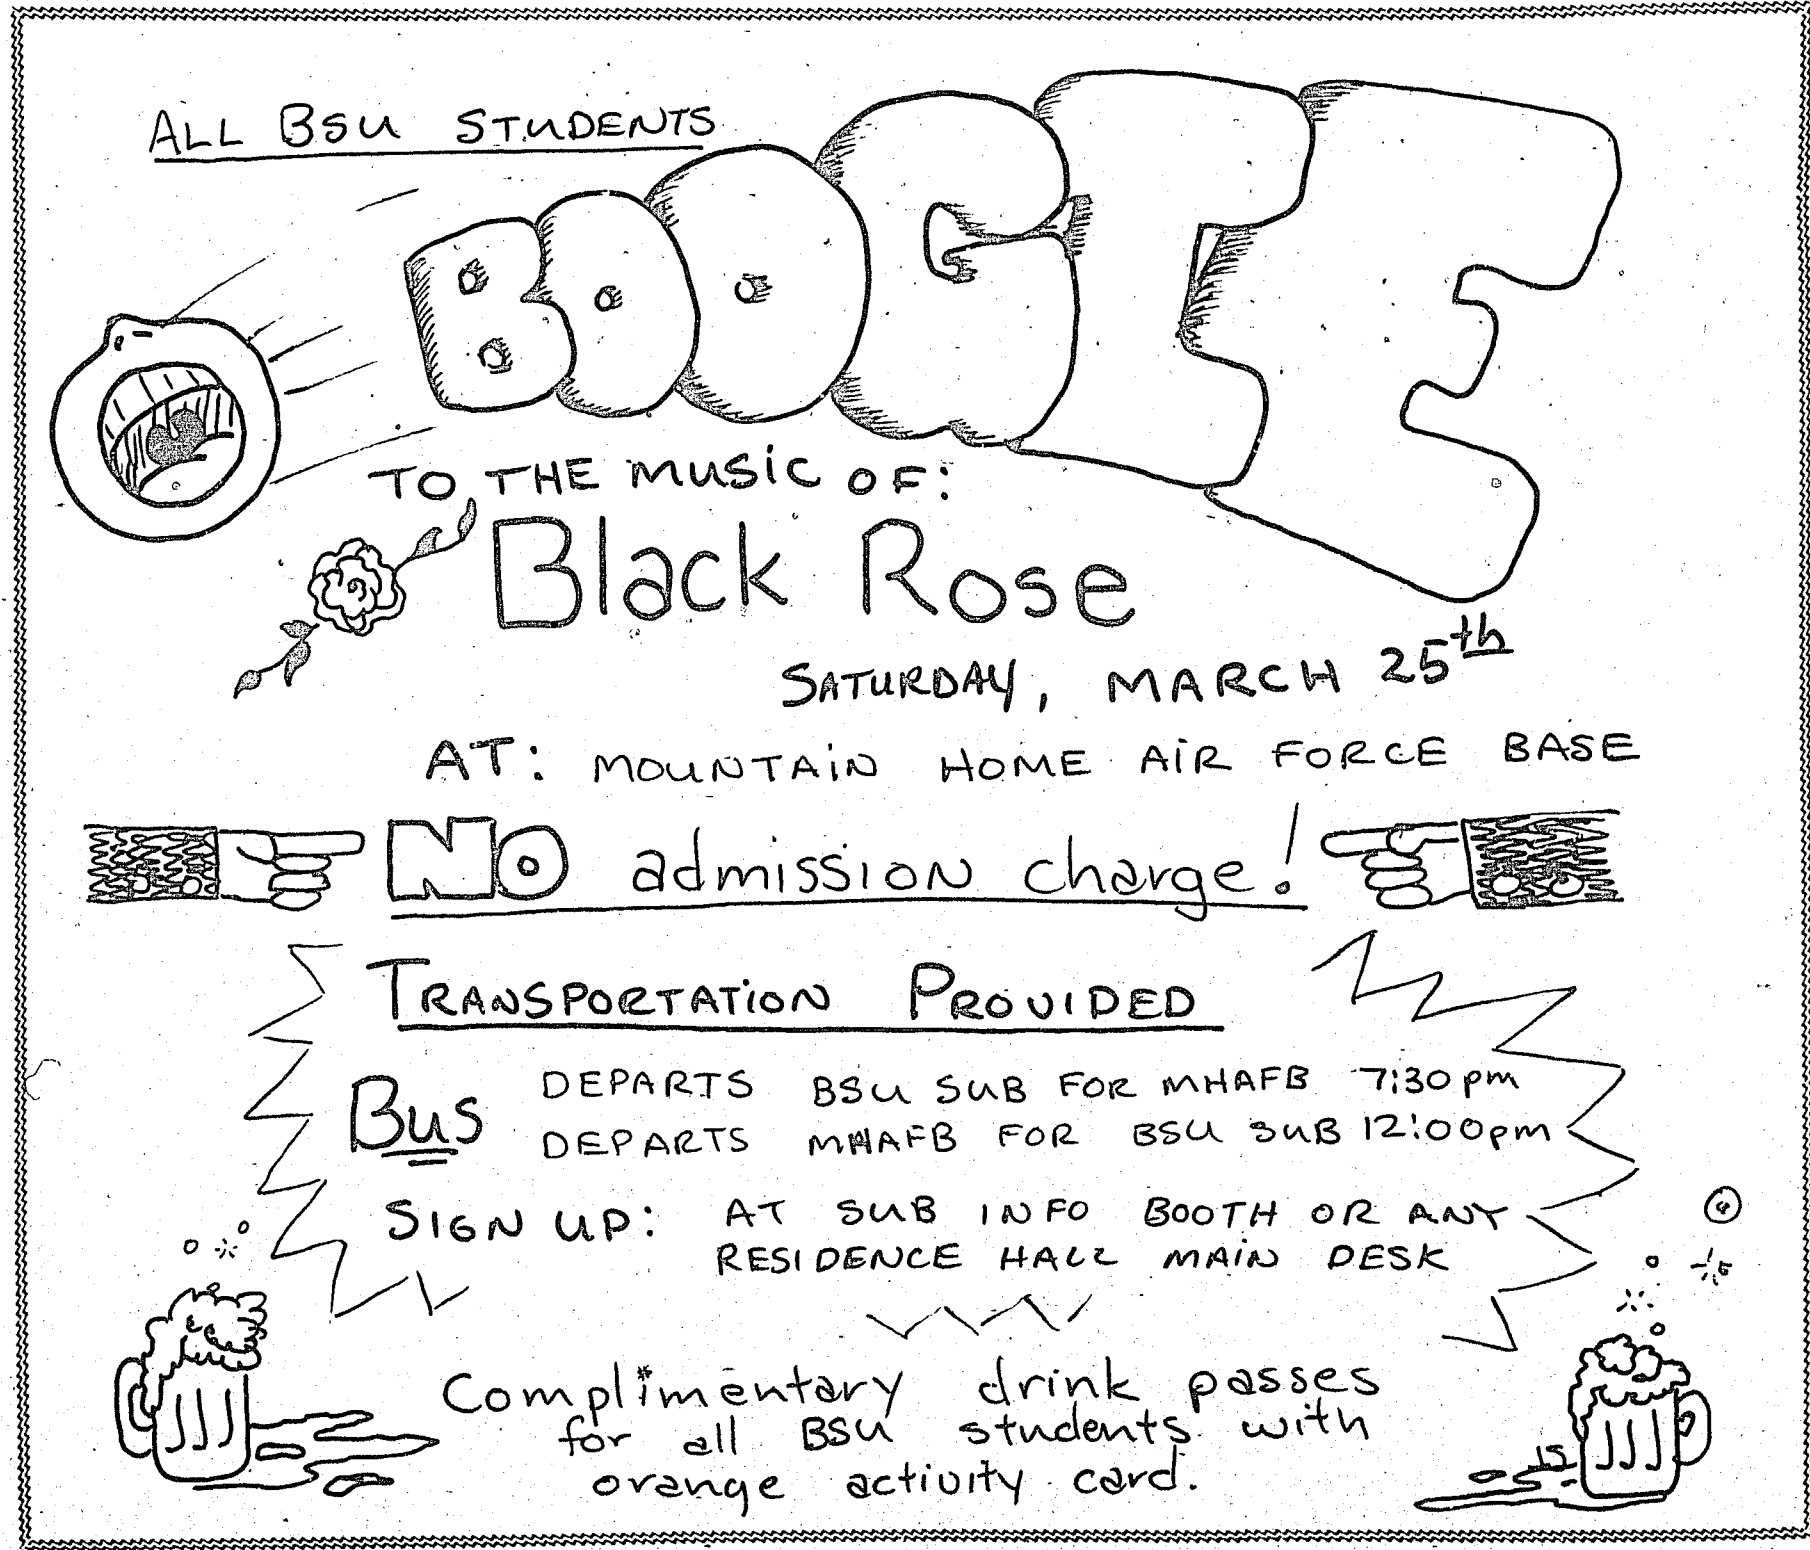 ALL BSU STUDENTS
BOOGIE
TO THE MUSIC OF:
Black Rose
SATURDAY, MARCH 25th
AT: MOUNTAIN HOME AIR FORCE BASE
NO admission charge!
TRANSPORTATION PROVIDED
Bus DEPARTS BSU SUB FOR MHAFB 7:30pm
DEPARTS MHAFB FOR BSU SUB 12:00pm
SIGN UP: AT SUB INFO BOOTH OR ANY
RESIDENCE HALL MAIN DESK
Complimentary drink passes
for all BSU students with
orange activity card.